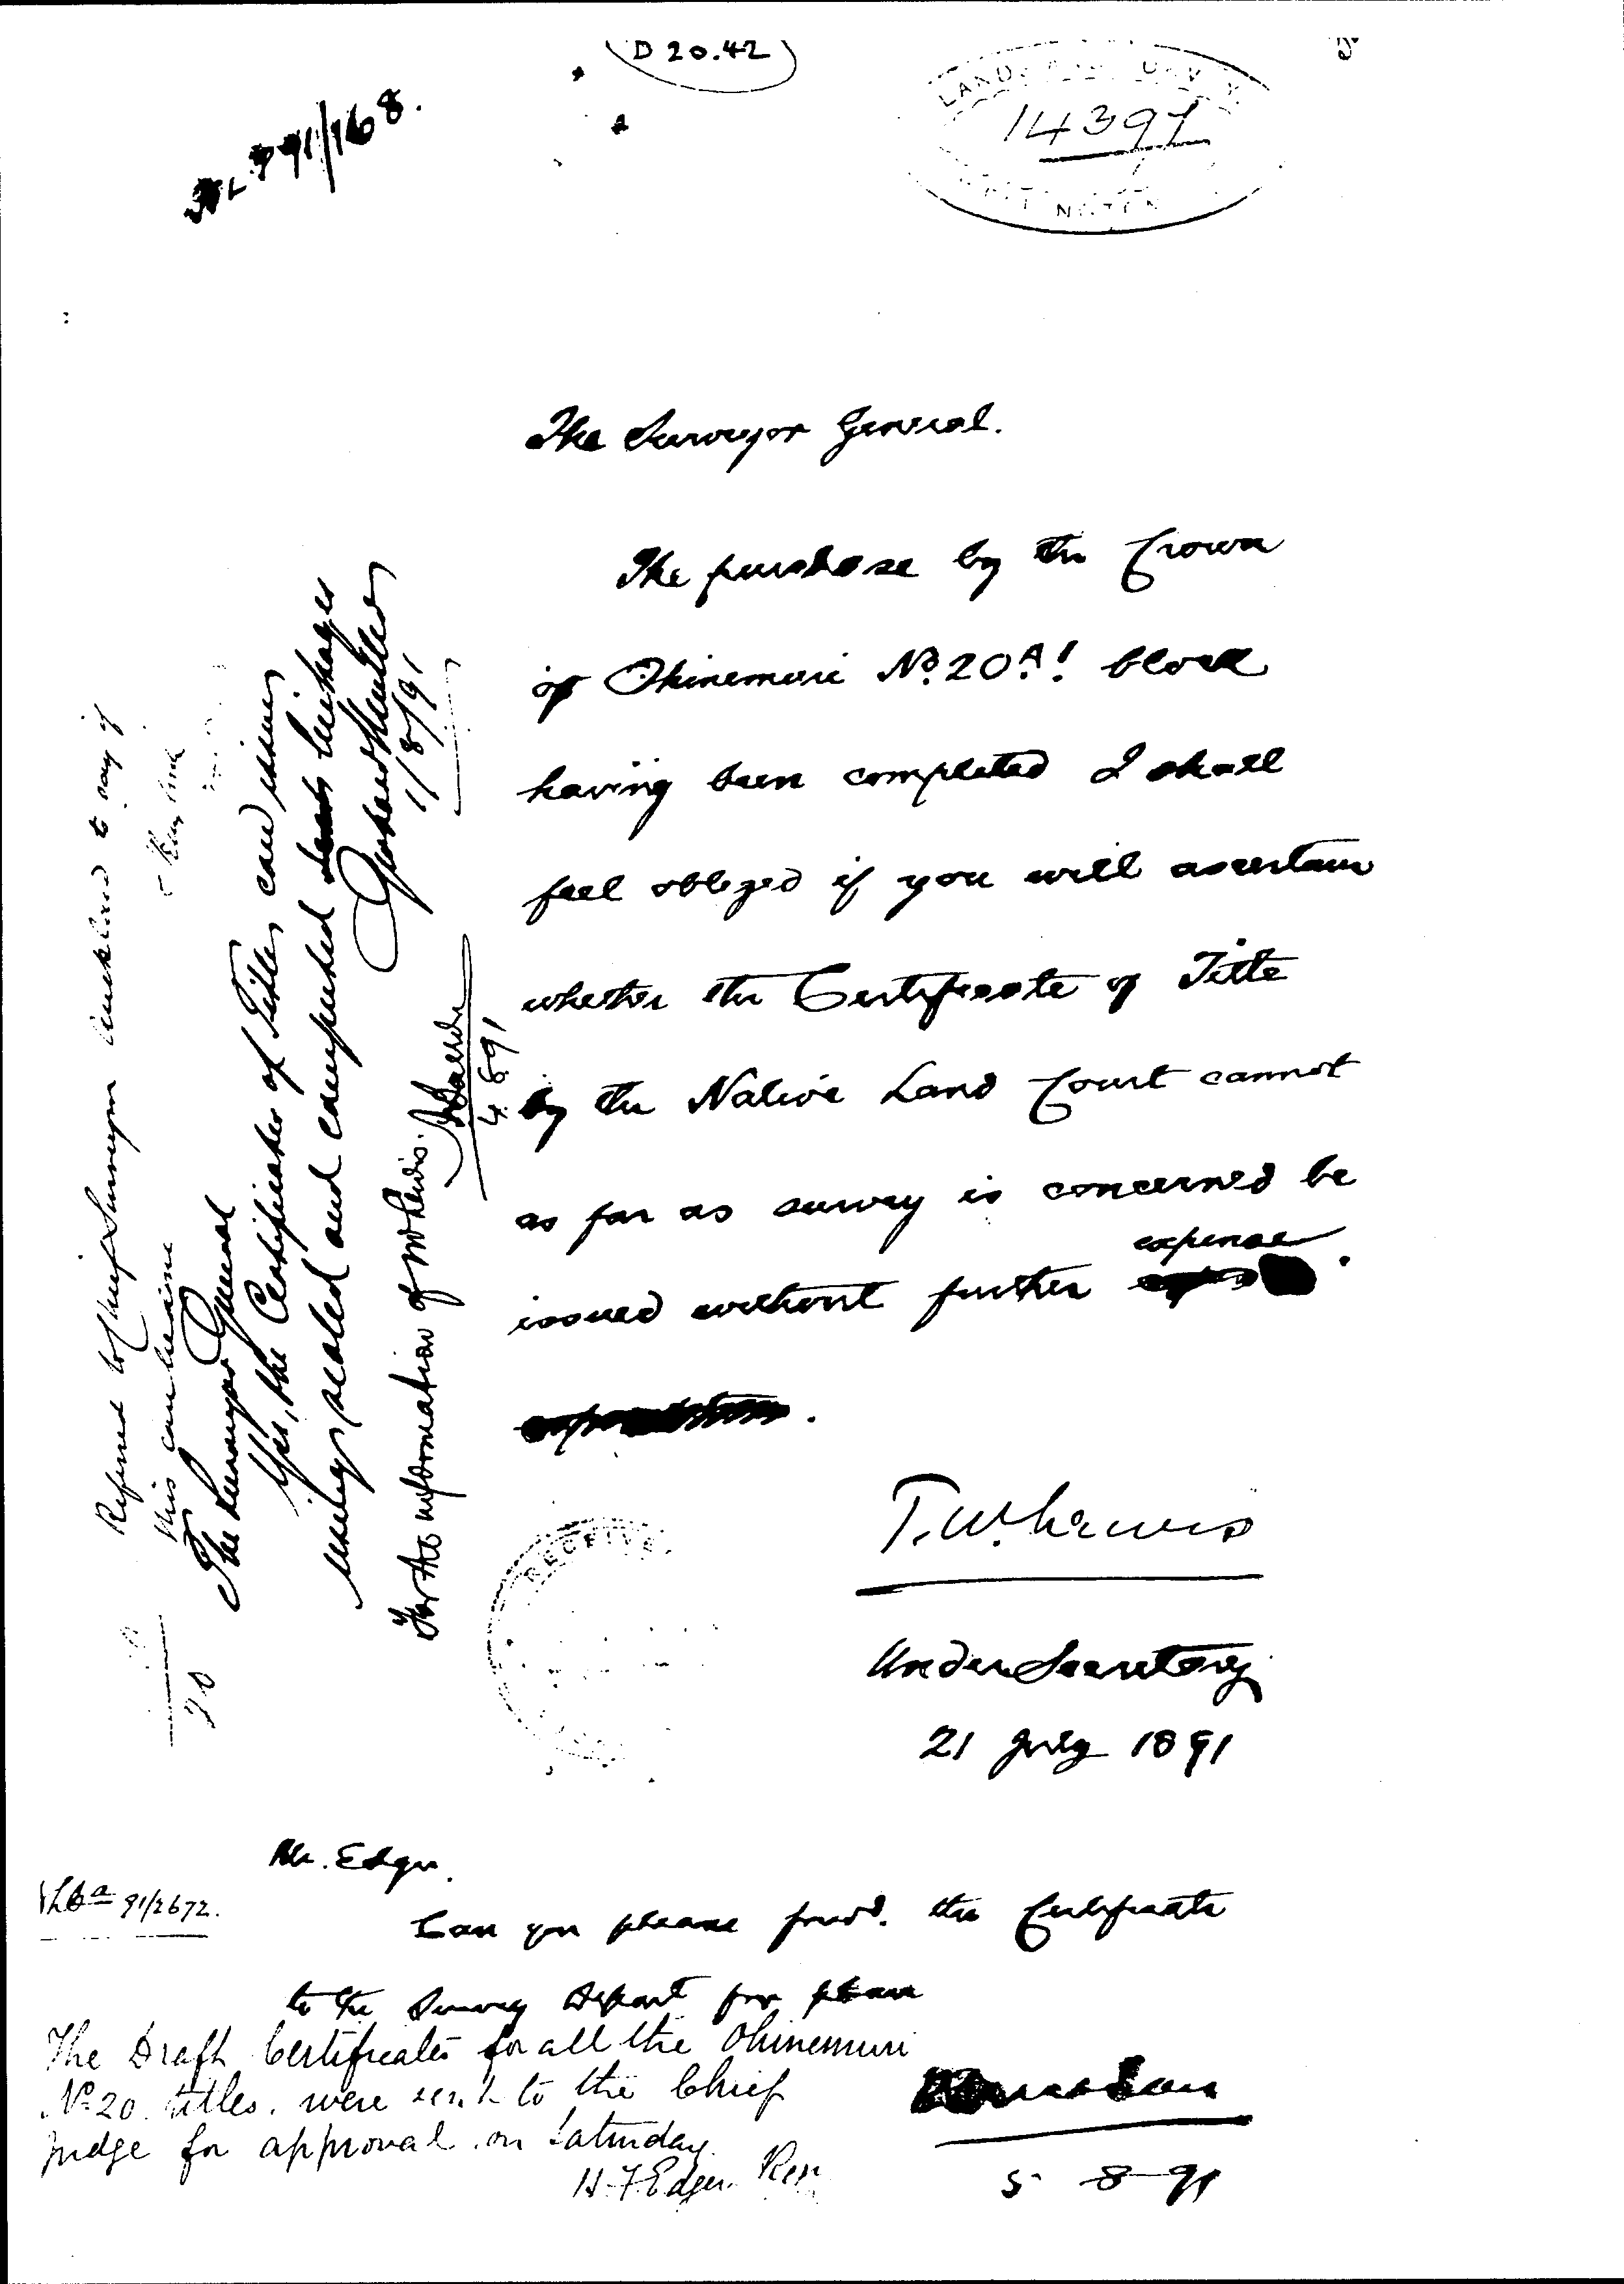 D 20.42
91/168.
LAND
14397
The Surveyor General.
The purchase by the Crown
of Ohinemuri No. 20A1 block
having been completed I shall
feel obliged if you will ascertain
whether the Certificate of Title
by the Native Land Court cannot
as far as survey is concerned be
expense
issued without further
T.W. Lewis
Under Secretary
21 July 1891
RECEIVE
Referred to Chief Surveyor Auckland to say if
this can be done
The Surveyor General
Yes, the Certificates of Title, can issue,
sealed and compared
Gerhard Mueller
1/8/91
For the information of Mr Lewis.
4.8.91
Mr. Edger.
91/2672.
Can you please forwd. the Certificate
to the Survey Depart for plan
5-8-91
The Draft Certificates for all the Ohinemuri
No 20 titles. were sent to the Chief
Judge for approval on Saturday.
H.F. Edger. Regr